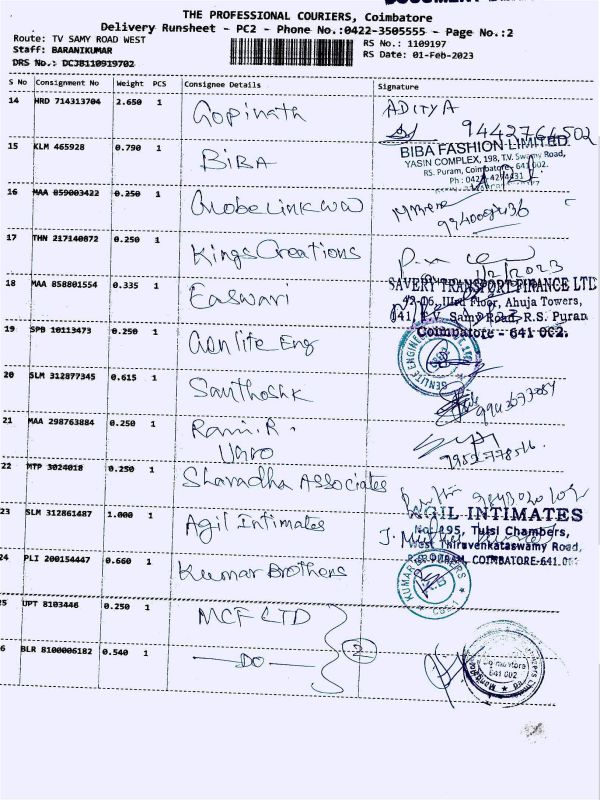 THE PROFESSIONAL COURIERS, Coimbatore
Delivery Runsheet - PC2 - Phone No.:0422-3505555 - Page No.:2
Route: TV SAMY ROAD WEST
RS No.: 1109197
Staff: BARANIKUMAR
RS Date: 01-Feb-2023
DRS No.: DCJB110919702
S No Consignment No Weight PCS Consignee Details Signature
14 HRD 714313704 2.650 1 Gopinath ADITYA
9442764502
15 KLM 465928 0.790 1 BIBA BIBA FASHION LIMITED
YASIN COMPLEX, 198, T.V. Swamy Road,
RS. Puram, Coimbatore - 641 002.
16 MAA 859003422 0.250 1 Globe Link
17 THN 217140872 0.250 1 Kings Creations
1/2/2023
18 MAA 858801554 0.335 1 Easwari SAVERY TRANSPORT FINANCE LTD
42-06, IIIrd Floor, Ahuja Towers,
141, T.V. Samy Road, R.S. Puran
Coimbatore - 641 002.
19 SPB 10113473 0.250 1 Genlite Eng
20 SLM 312877345 0.615 1 Santhosh K
21 MAA 298763884 0.250 1 Ram. R.
22 MTP 3024018 0.250 1 Sharadha Associates
23 SLM 312861487 1.000 1 Agil Intimates AGIL INTIMATES
No: 195, Tulsi Chambers,
West Thiruvenkataswamy Road,
R.S. PURAM, COIMBATORE-641.002
24 PLI 200154447 0.660 1 Kumar Brothers
KUMAR BROTHERS
25 UPT 8103446 0.250 1 MCF LTD
2
6 BLR 8100006182 0.540 1 — DO —
641 002